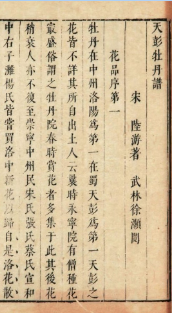 天彭牡丹譜
宋 陸游著 武林徐灝閱
花品序第一
牡丹在中州洛陽為第一在蜀天彭為第一天彭之
花皆不詳其所自出土人云曩時永寧院有僧種花
最盛俗謂之牡丹院春時賞花者多集于此其後花
稍衰人亦不復至崇寧中州民宋氏張氏蔡氏宣和
中石子灘楊氏皆嘗買洛中新花以歸自是洛花散